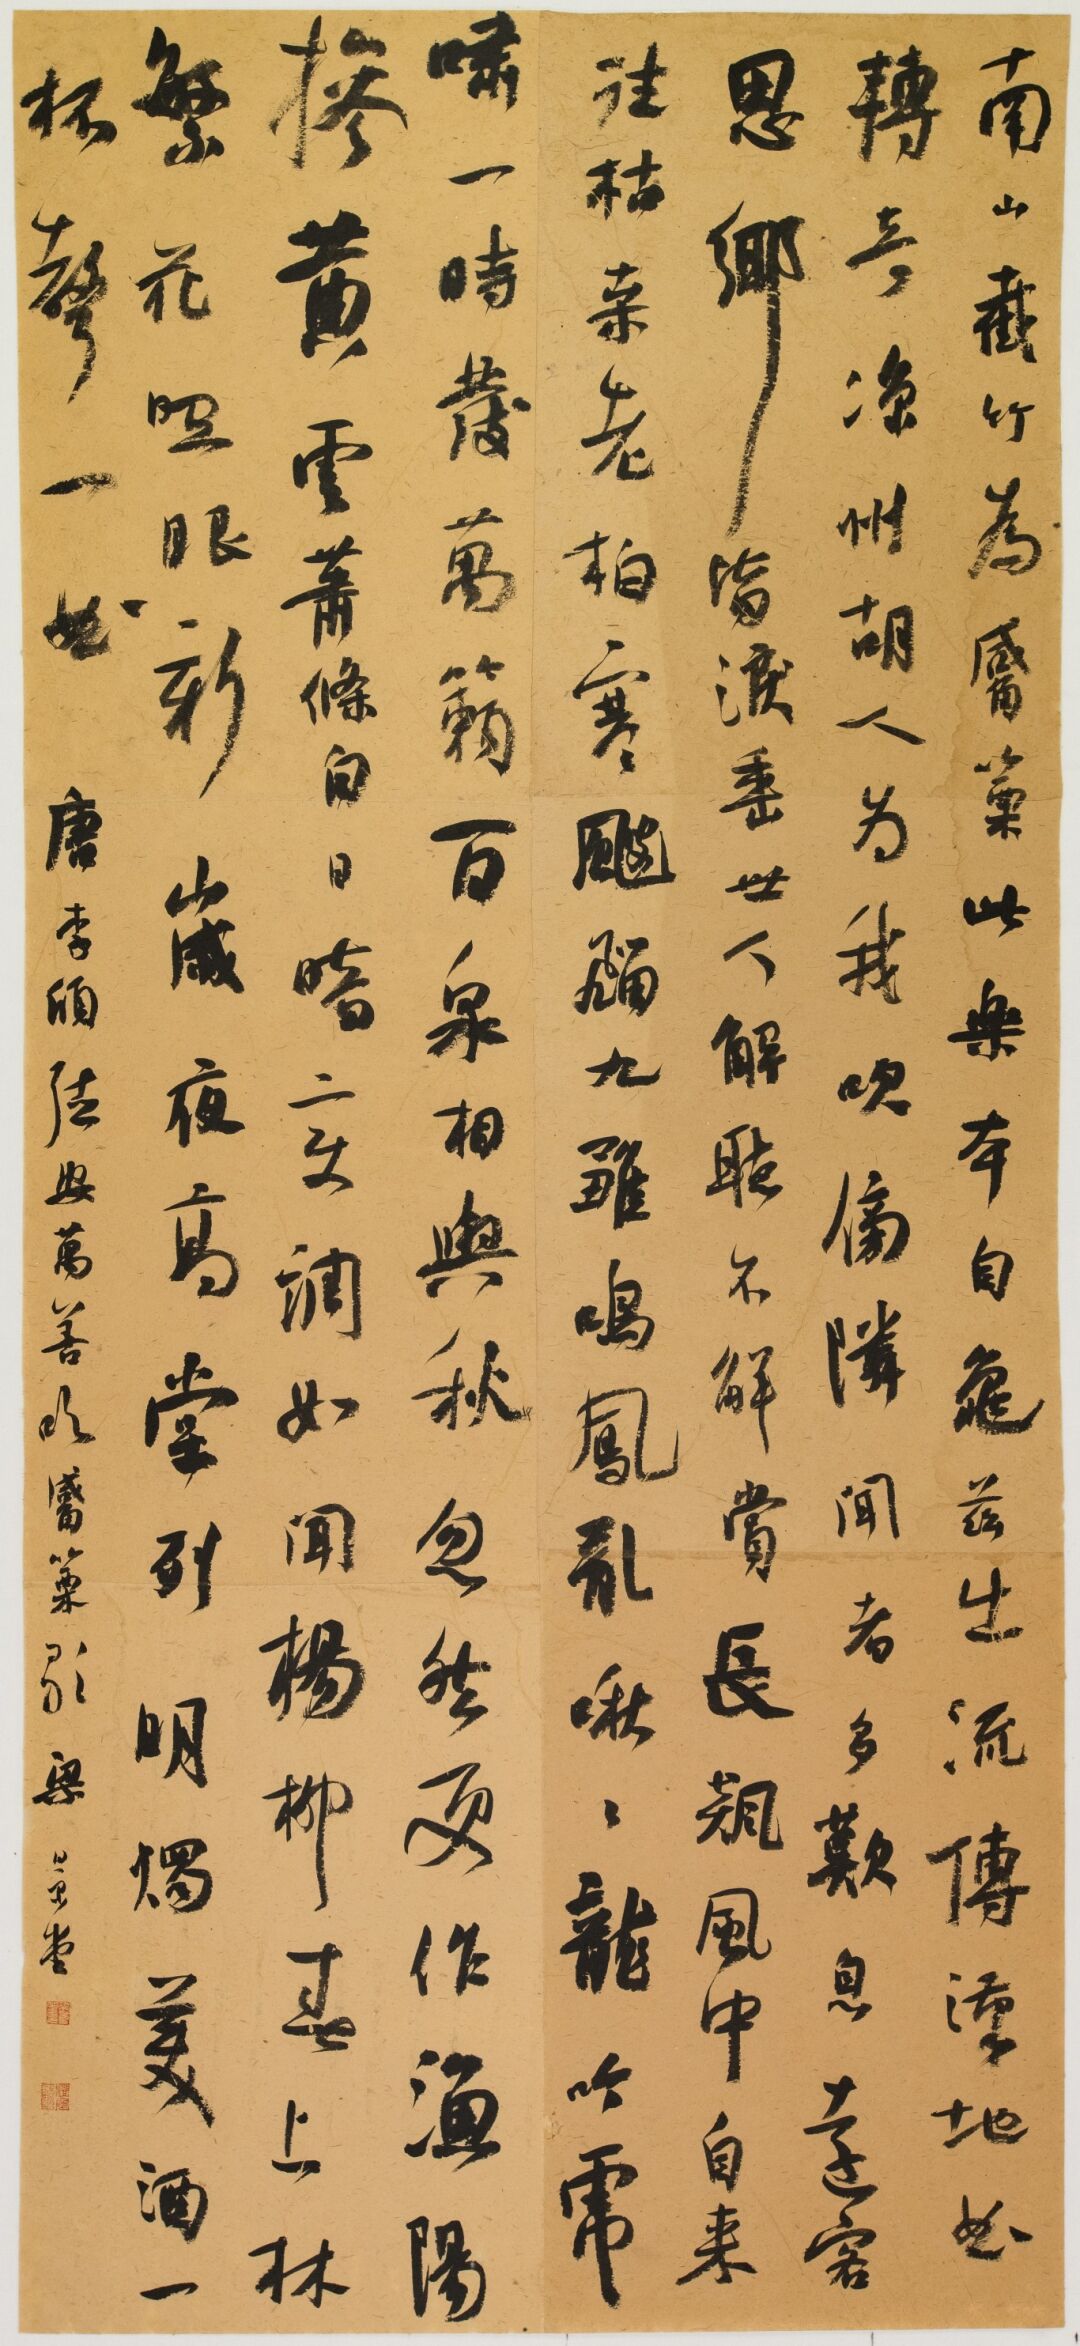 南山截竹為觱篥此樂本自龜茲出流傳漢地曲
轉奇涼州胡人为我吹傍隣聞者多歎息遠客
思鄉皆淚垂世人解聽不解賞長飆風中自来
往枯桑老柏寒颼飀九雛鳴鳳亂啾〻龍吟虎
嘯一時發萬籟百泉相與秋忽然更作漁陽
摻黄雲蕭條白日暗變調如聞楊柳春上林
繁花照眼新歲夜高堂列明燭美酒一
杯聲一曲 唐李頎聽安萬善吹觱篥歌 梁